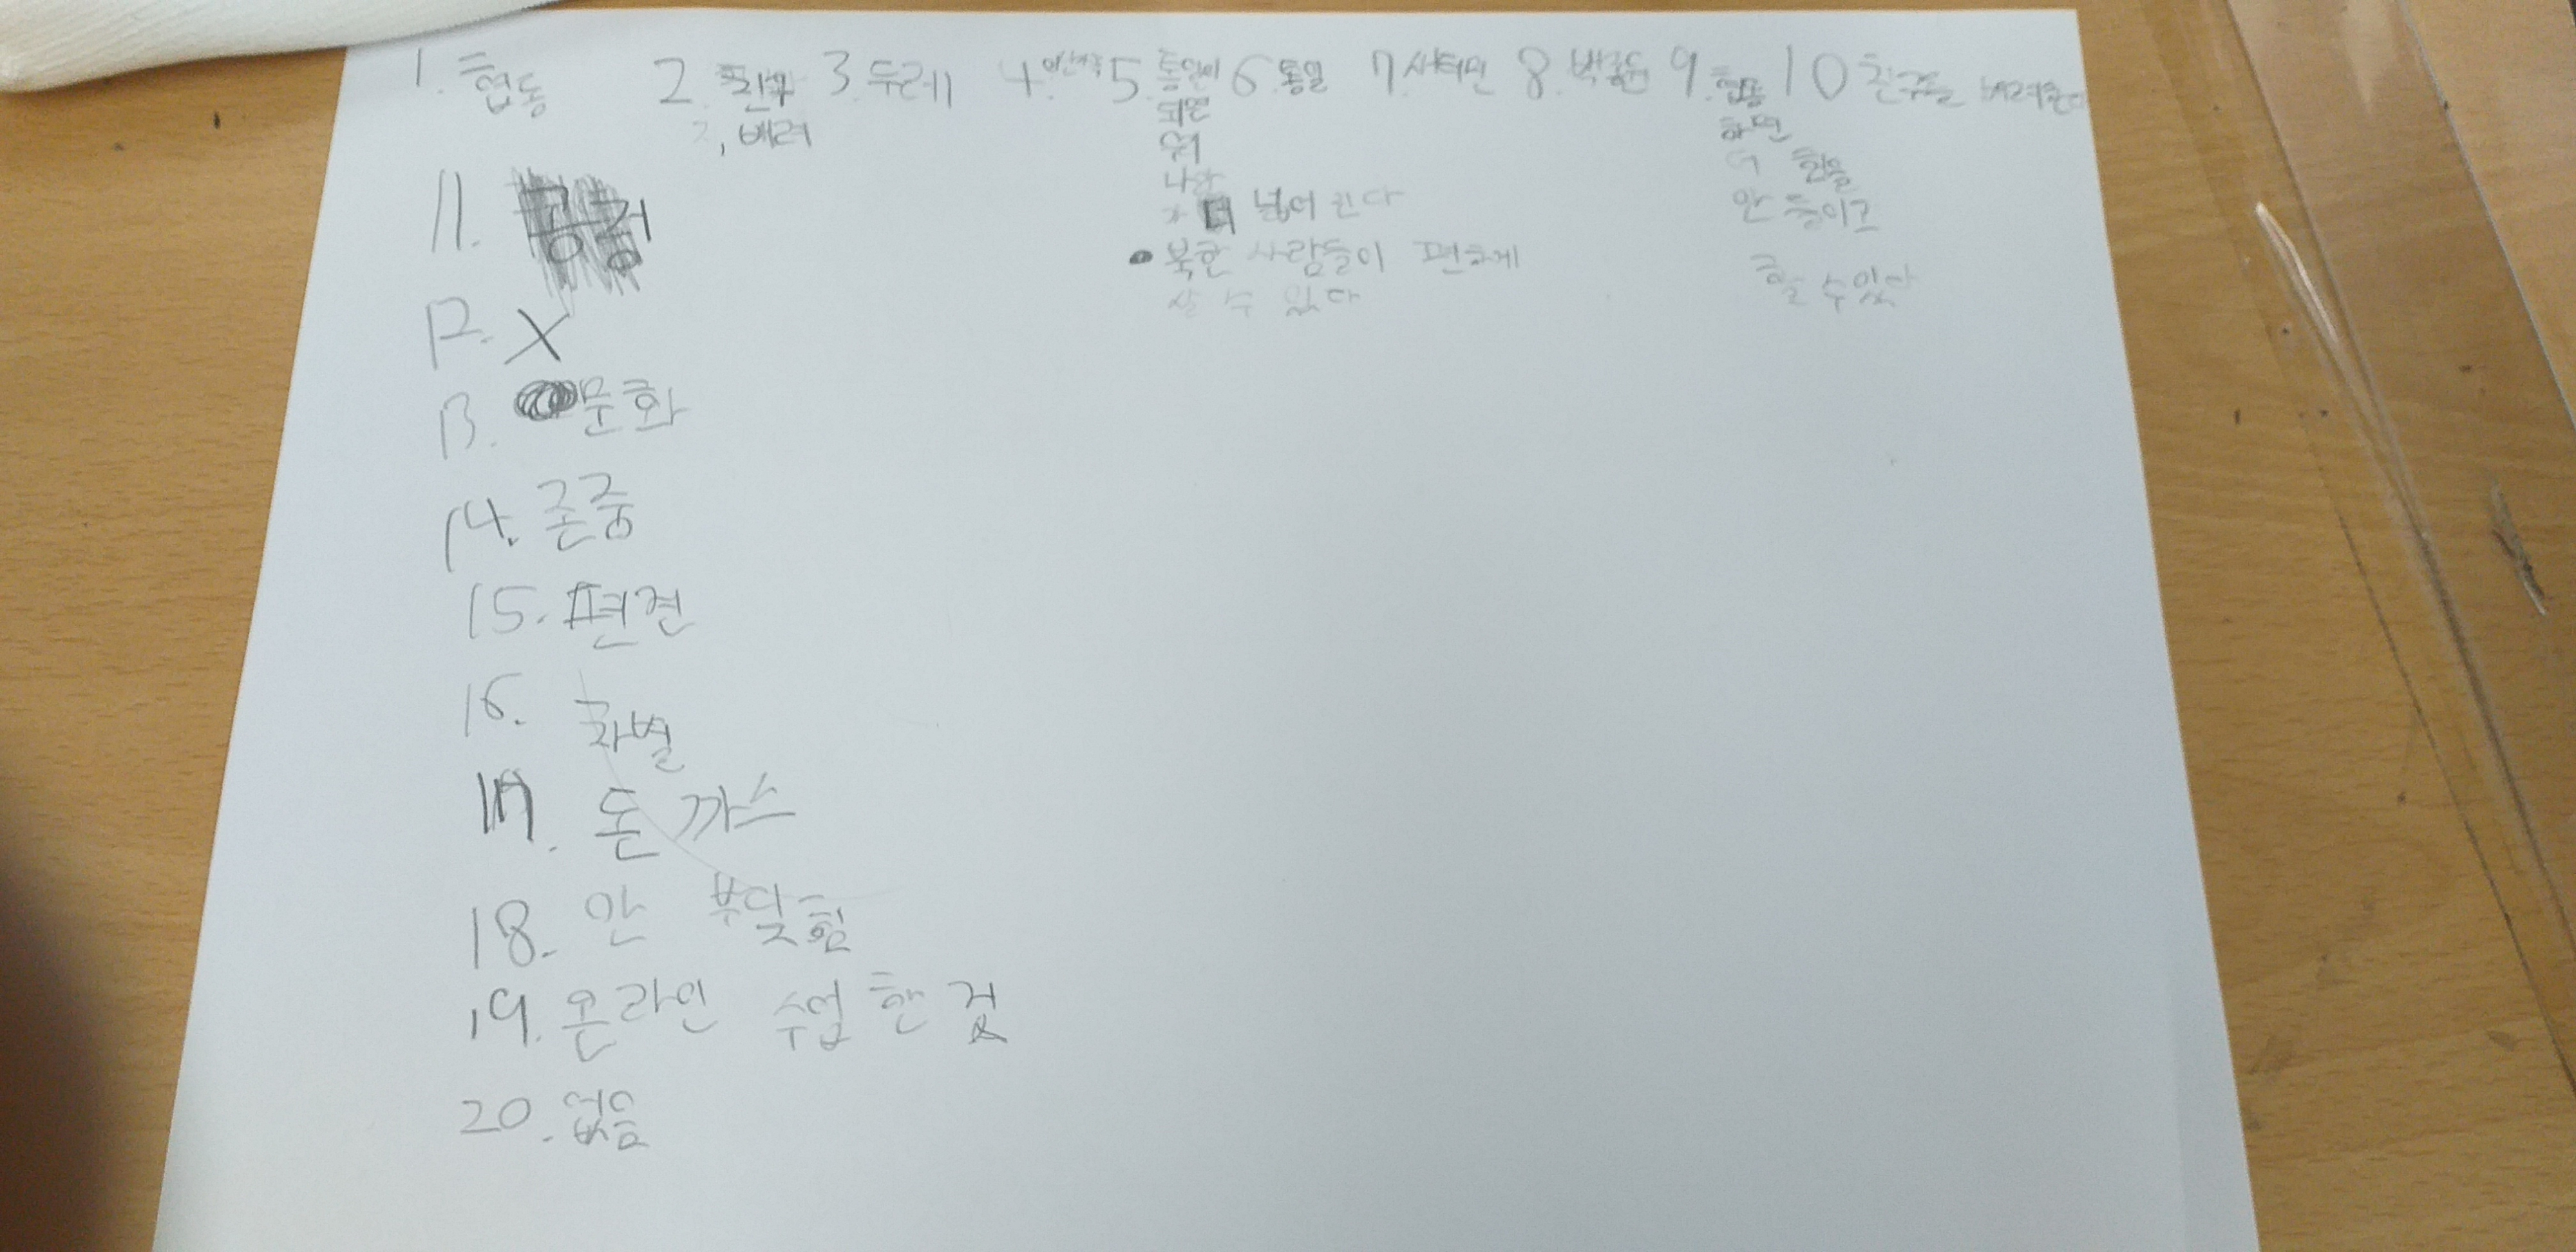 1. 협동 2. 친구 3. 두레 4. 이산가족 5. 통일이 6. 통일 7. 새터민 8. 9. 협동 10 친구를 배려한다
2, 배려
되면
하면
우리
더 힘을
나라
안 들이고
가 더 넓어 진다
할 수 있다
• 북한 사람들이 편하게
살 수 있다
11.
12. X
13. 문화
14. 존중
15. 편견
16. 차별
17. 돈까스
18. 안 부딪힘
19. 온라인 수업 한 것
20. 없음